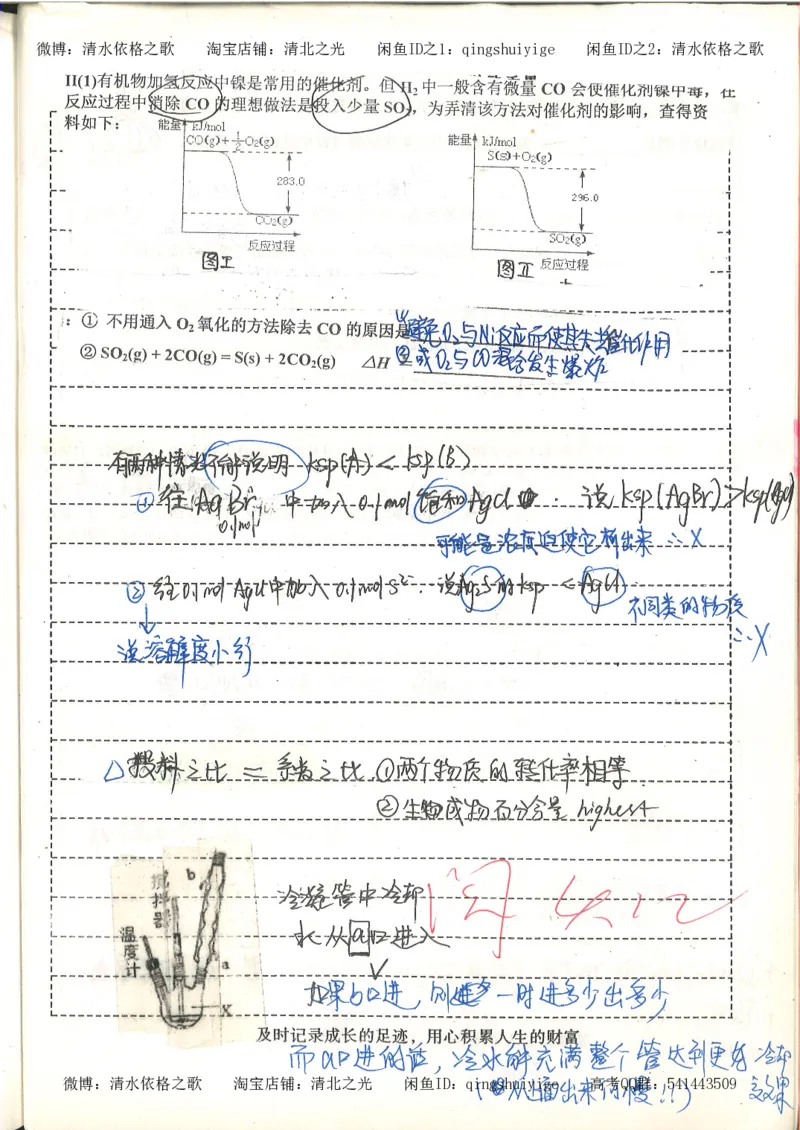 微博：清水依格之歌 淘宝店铺：清北之光 闲鱼ID之1：qingshuiyige 闲鱼ID之2：清水依格之歌
II(1)有机物加氢反应中镍是常用的催化剂。但 H₂ 中一般含有微量 CO 会使催化剂镍中毒，在
反应过程中消除 CO 的理想做法是投入少量 SO₂，为弄清该方法对催化剂的影响，查得资
料如下：
能量 kJ/mol
CO(g)+½O₂(g)
283.0
CO₂(g)
反应过程
图I
能量 kJ/mol
S(s)+O₂(g)
296.0
SO₂(g)
反应过程
图II
：① 不用通入 O₂ 氧化的方法除去 CO 的原因是 ①避免O₂与Ni反应而使其失去催化作用
② SO₂(g) + 2CO(g) = S(s) + 2CO₂(g) △H = ②或O₂与CO混合发生爆炸
有两种情况不能说明 ksp(A) < ksp(B)
① 往 AgBr 中加入 0.1mol 饱和AgCl . 说 ksp(AgBr) > ksp(AgCl)
0.1mol
可能是浓度迫使它析出来 ∴ X
② 往0.1mol AgCl中加入0.1mol S²⁻. 说Ag₂S的ksp < AgCl
不同类的物质
∴ X
说溶解度小
△ 投料之比 = 系数之比 ①两个物质的转化率相等
②生物成物百分含量 highest
搅拌器
温度计
b
a
X
冷凝管中冷却
水从a口进入
如果b口进，则进多一时进多少出多少
及时记录成长的足迹，用心积累人生的财富
而a口进的话，冷水能充满整个管达到更好冷却效果
微博：清水依格之歌 淘宝店铺：清北之光 闲鱼ID：qingshuiyige 高考QQ群：541443509